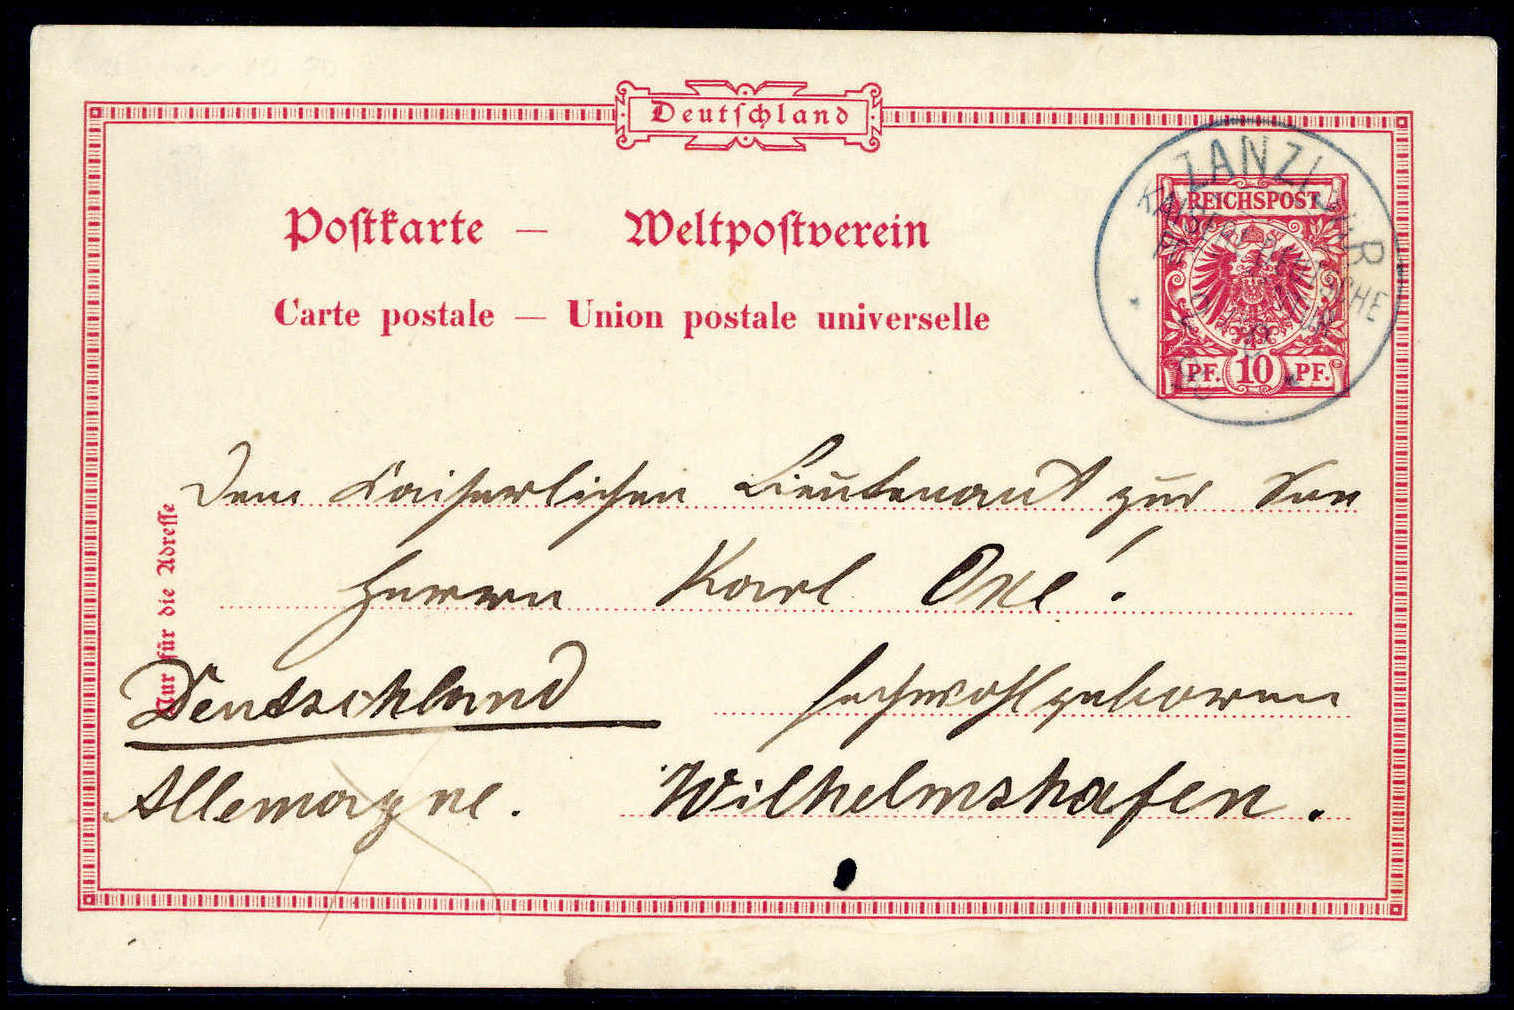 Deutschland
Postkarte — Weltpostverein
Carte postale — Union postale universelle
REICHSPOST
PF. 10 PF.
ZANZIBAR
KAISERL. DEUTSCHE
Nur für die Adresse
Dem Kaiserlichen Lieutenant zur See
Herrn Karl Oxé!
Deutschland
hochwohlgeboren
Allemagne.
Wilhelmshafen.